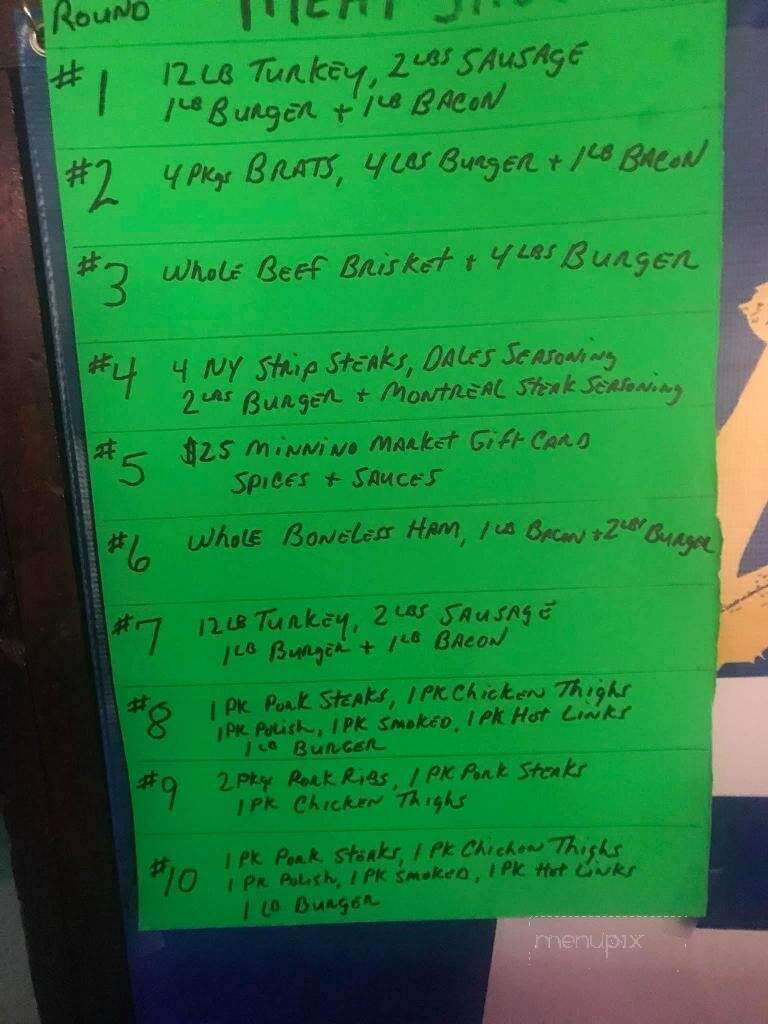 ROUND MEAT
#1 12 LB TURKEY, 2 LBS SAUSAGE
1 LB BURGER + 1 LB BACON
#2 4 PKgs BRATS, 4 LBS BURGER + 1 LB BACON
#3 WHOLE BEEF BRISKET + 4 LBS BURGER
#4 4 NY STRIP STEAKS, DALES SEASONING
2 LBS BURGER + MONTREAL STEAK SEASONING
#5 $25 MINNINO MARKET GIFT CARD
SPICES + SAUCES
#6 WHOLE BONELESS HAM, 1 LB BACON + 2 LBS BURGER
#7 12 LB TURKEY, 2 LBS SAUSAGE
1 LB BURGER + 1 LB BACON
#8 1 PK PORK STEAKS, 1 PK CHICKEN THIGHS
1 PK POLISH, 1 PK SMOKED, 1 PK HOT LINKS
1 LB BURGER
#9 2 PKgs PORK RIBS, 1 PK PORK STEAKS
1 PK CHICKEN THIGHS
#10 1 PK PORK STEAKS, 1 PK CHICKEN THIGHS
1 PK POLISH, 1 PK SMOKED, 1 PK HOT LINKS
1 LB BURGER
menupix